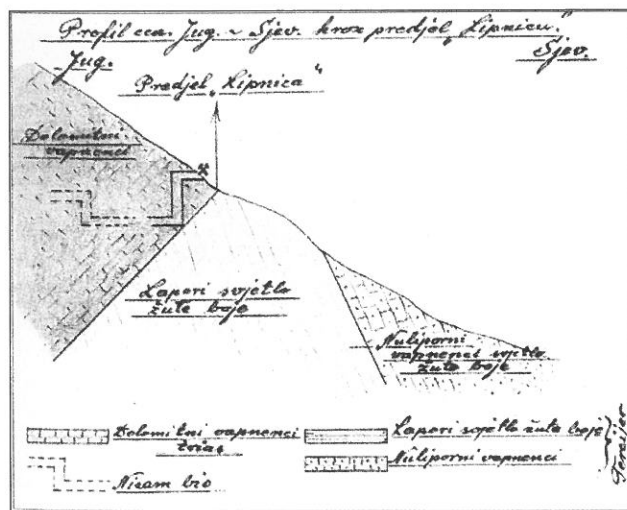 Profil cca. Jug. ~ Sjev. kroz predjel „Lipnicu."
Jug.
Sjev.
Predjel „Lipnica"
Dolomitni
vapnenci
Lapori svjetlo
žute boje
Nuliporni
vapnenci svjetlo
žute boje
Dolomitni vapnenci
Trias
Lapori svjetlo žute boje
Nuliporni vapnenci
Nisam bio
Tercijer